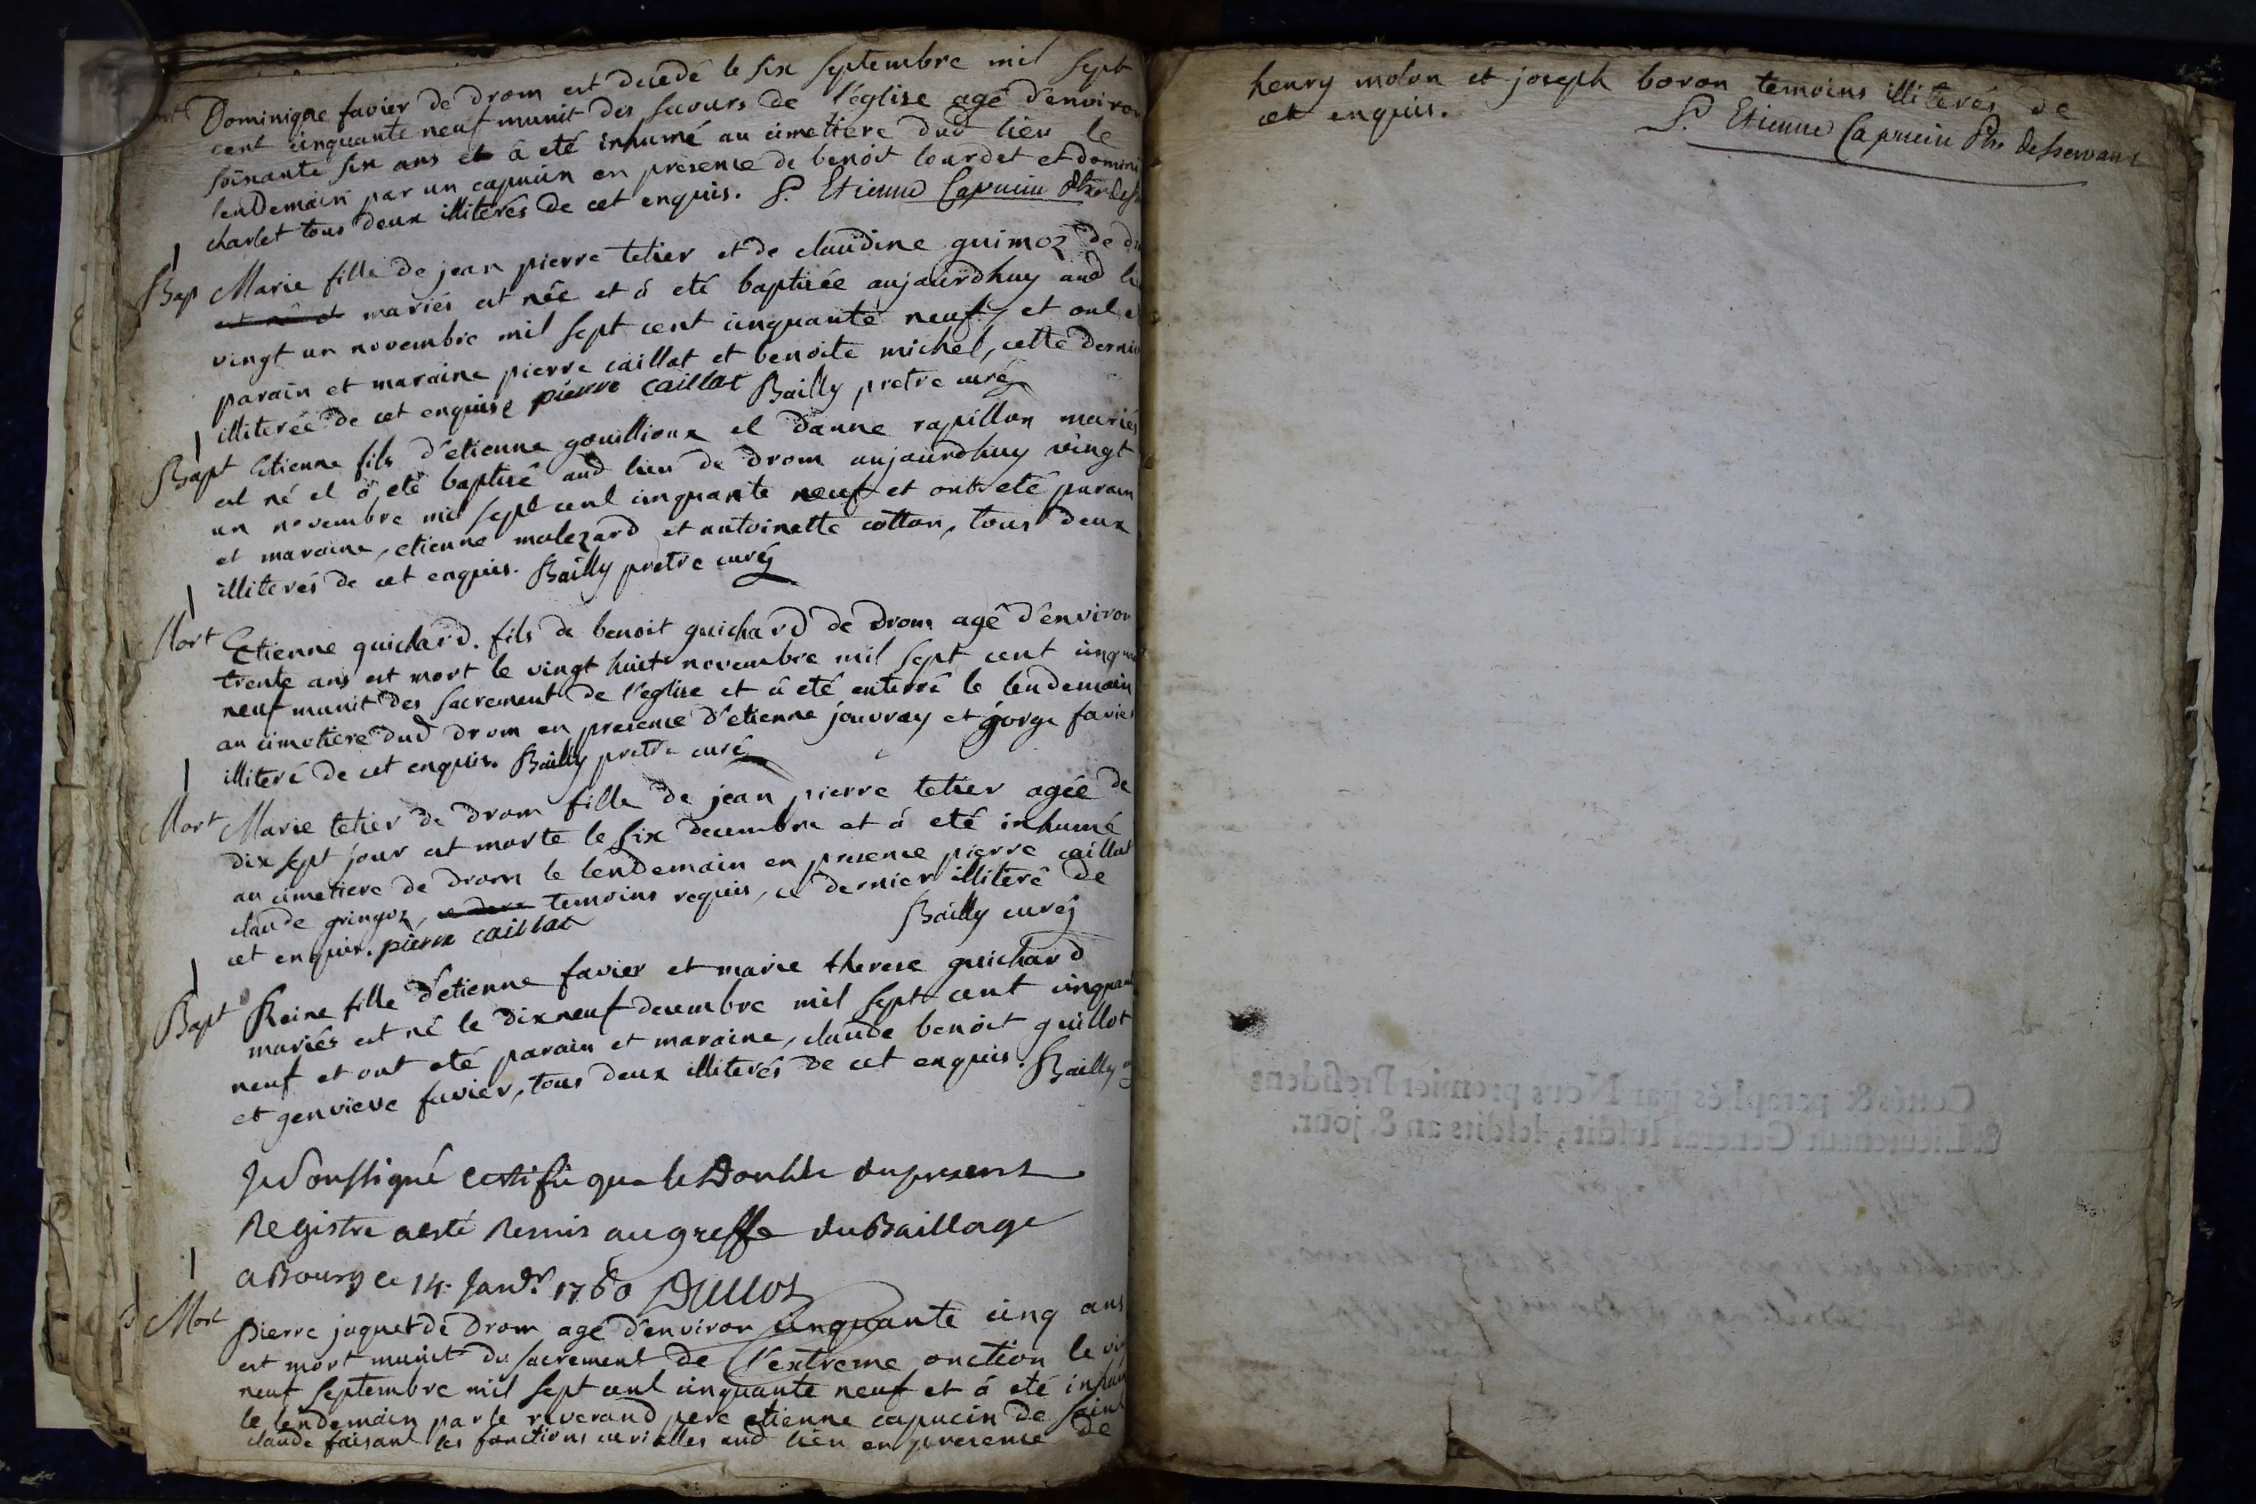 Dominique favier de drom est decedé le six septembre mil sept
cent cinquante neuf munit des secours de l'église agé d'environ
soixante six ans et â eté inhumé au cimetiere dud lieu le
lendemain par un capucin en presence de benoit lourdet et domini
charlet tous deux illiterés de cet enquis. P. Etienne Capucin Ptre dess
Bap Marie fille de jean pierre tetier et de claudine guimoz de dr
est né et mariés est née et â eté baptisée aujaurdhuy aud li
vingt un novembre mil sept cent cinquante neuf, et ont e
parain et maraine pierre caillat et benoite michel, cette derni
illiterée de cet enquise pierre caillat Bailly pretre curé
Bapt Etienne fils d'etienne gouillioux et danne rapillon mariés
est né et â eté baptisé aud lieu de drom aujaurdhuy vingt
un novembre mil sept cent cinquante neuf et ont eté parain
et maraine, etienne malezard et antoinette cottan, tous deux
illiterés de cet enquis. Bailly pretre curé
Mort Etienne guichard. fils de benoit guichard de drom agé d'environ
trente ans est mort le vingt huit novembre mil sept cent cinqua
neuf munit des sacrement de l'eglise et â eté enterré le lendemain
au cimetiere dud drom en presence d'etienne jouvray et jorge favier
illiteré de cet enquis. Bailly pretre curé
Mort Marie tetier de drom fille de jean pierre tetier agée de
dix sept jour est morte le six decembre et â eté inhumé
au cimetiere de drom le lendemain en presence pierre caillat
claude gringoz, ce dern temoins requis, ce dernier illiteré de
cet enquis. pierre caillat Bailly curé
Bapt Reine fille d'etienne favier et marie therese guichard
mariés est né le dixneuf decembre mil sept cent cinquant
neuf et ont eté parain et maraine, claude benoit guillot
et genvieve favier, tous deux illiterés de cet enquis. Bailly
Je Soussigné certifie que le Double du present
Registre a esté Remis au greffe du Baillage
a Bourg ce 14. Janvr. 1760
Mort pierre jaquet de Drom agé d'environ cinquante cinq ans
est mort munit du sacrement de l'extreme onction le vi
neuf septembre mil sept cent cinquante neuf et â eté inhu
le lendemain par le reverand pere etienne capucin de saint
claude faisant les fonctions curialles aud lieu en presence de
henry molon et joseph boron temoins illiterés de
cet enquis.
P. Etienne Capucin Ptre desservant
Cottés & paraphés par Nous premier President
& Lieutenant General susdit, lesdits an & jour.